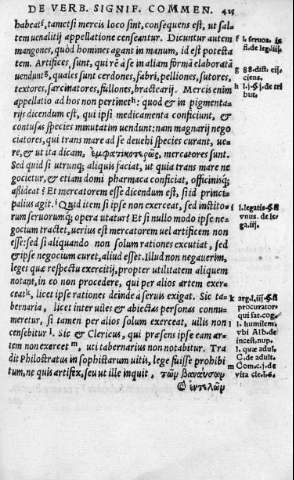 DE VERB. SIGNIF. COMMEN. 425
habeat f, tametsi mercis loco sint, consequens est, ut sal-
tem uenalitij appellatione censeantur. Dicuntur autem
mangones, quod homines agant in manum, id est potesta
tem. Artifices, sunt, qui rê à se in aliam formã elaboratã
uendunt g, quales sunt cerdones, fabri, pelliones, sutores,
textores, sarcinatores, fullones, bractearij. Mercis enim
appellatio ad hos non pertinet h: quod & in pigmenta-
rijs dicendum est, qui ipsi medicamenta conficiunt, &
contusas species minutatim uendunt: nam magnarij nego
ciatores, qui trans mare ad se deuehi species curant, ue-
rè, & ut ita dicam, ἐμφατικοτέρως, mercatores sunt.
Sed quid si utrunq; aliquis faciat, ut quia trans mare ne
gocietur, & etiam domi pharmaca conficiat, officinisq;
assideat? Et mercatorem esse dicendum est, si id princi-
palius agit i. Quid item si ipse non exerceat, sed instito-
rum seruorumq; opera utatur? Et si nullo modo ipse ne-
gocium tractet, uerius est mercatorem uel artificem non
esse: sed si aliquando non solum rationes excutiat, sed
& ipse negocium curet, aliud esset. Illud non negauerim,
leges quæ respectu exercitij, propter utilitatem aliquem
notant, in eo non procedere, qui per alios artem exer-
ceat k, licet ipse rationes deinde à seruis exigat. Sic ta-
bernaria, licet inter uiles & abiectas personas connu-
meretur, si tamen per alios solum exerceat, uilis non
censebitur l. Sic & Clericus, qui præsens ipse eam ar-
tem non exercet m, uti tabernarius non notabitur. Tra
dit Philostratus in sophistarum uitis, lege fuisse prohibi
tum, ne quis artifex, seu ut ille inquit, τῶν βαναύσων
f l. seruos.
g 88. dist. eij
ciens.
h l. j. §. j. de tri
but.
i l. legatis. §
unus. de le-
ga. iij.
procurator
l l. humilem.
C. de adult.
vita cle. l. ij.